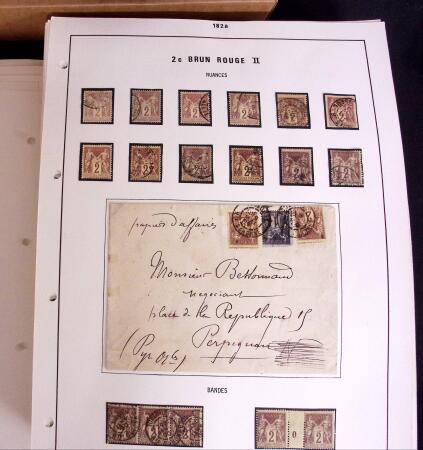 182a
2c BRUN ROUGE II
NUANCES
papiers d'affaires
Monsieur
negociant
place de la Republique 15
Perpignan
(Pyr. Or les)
BANDES